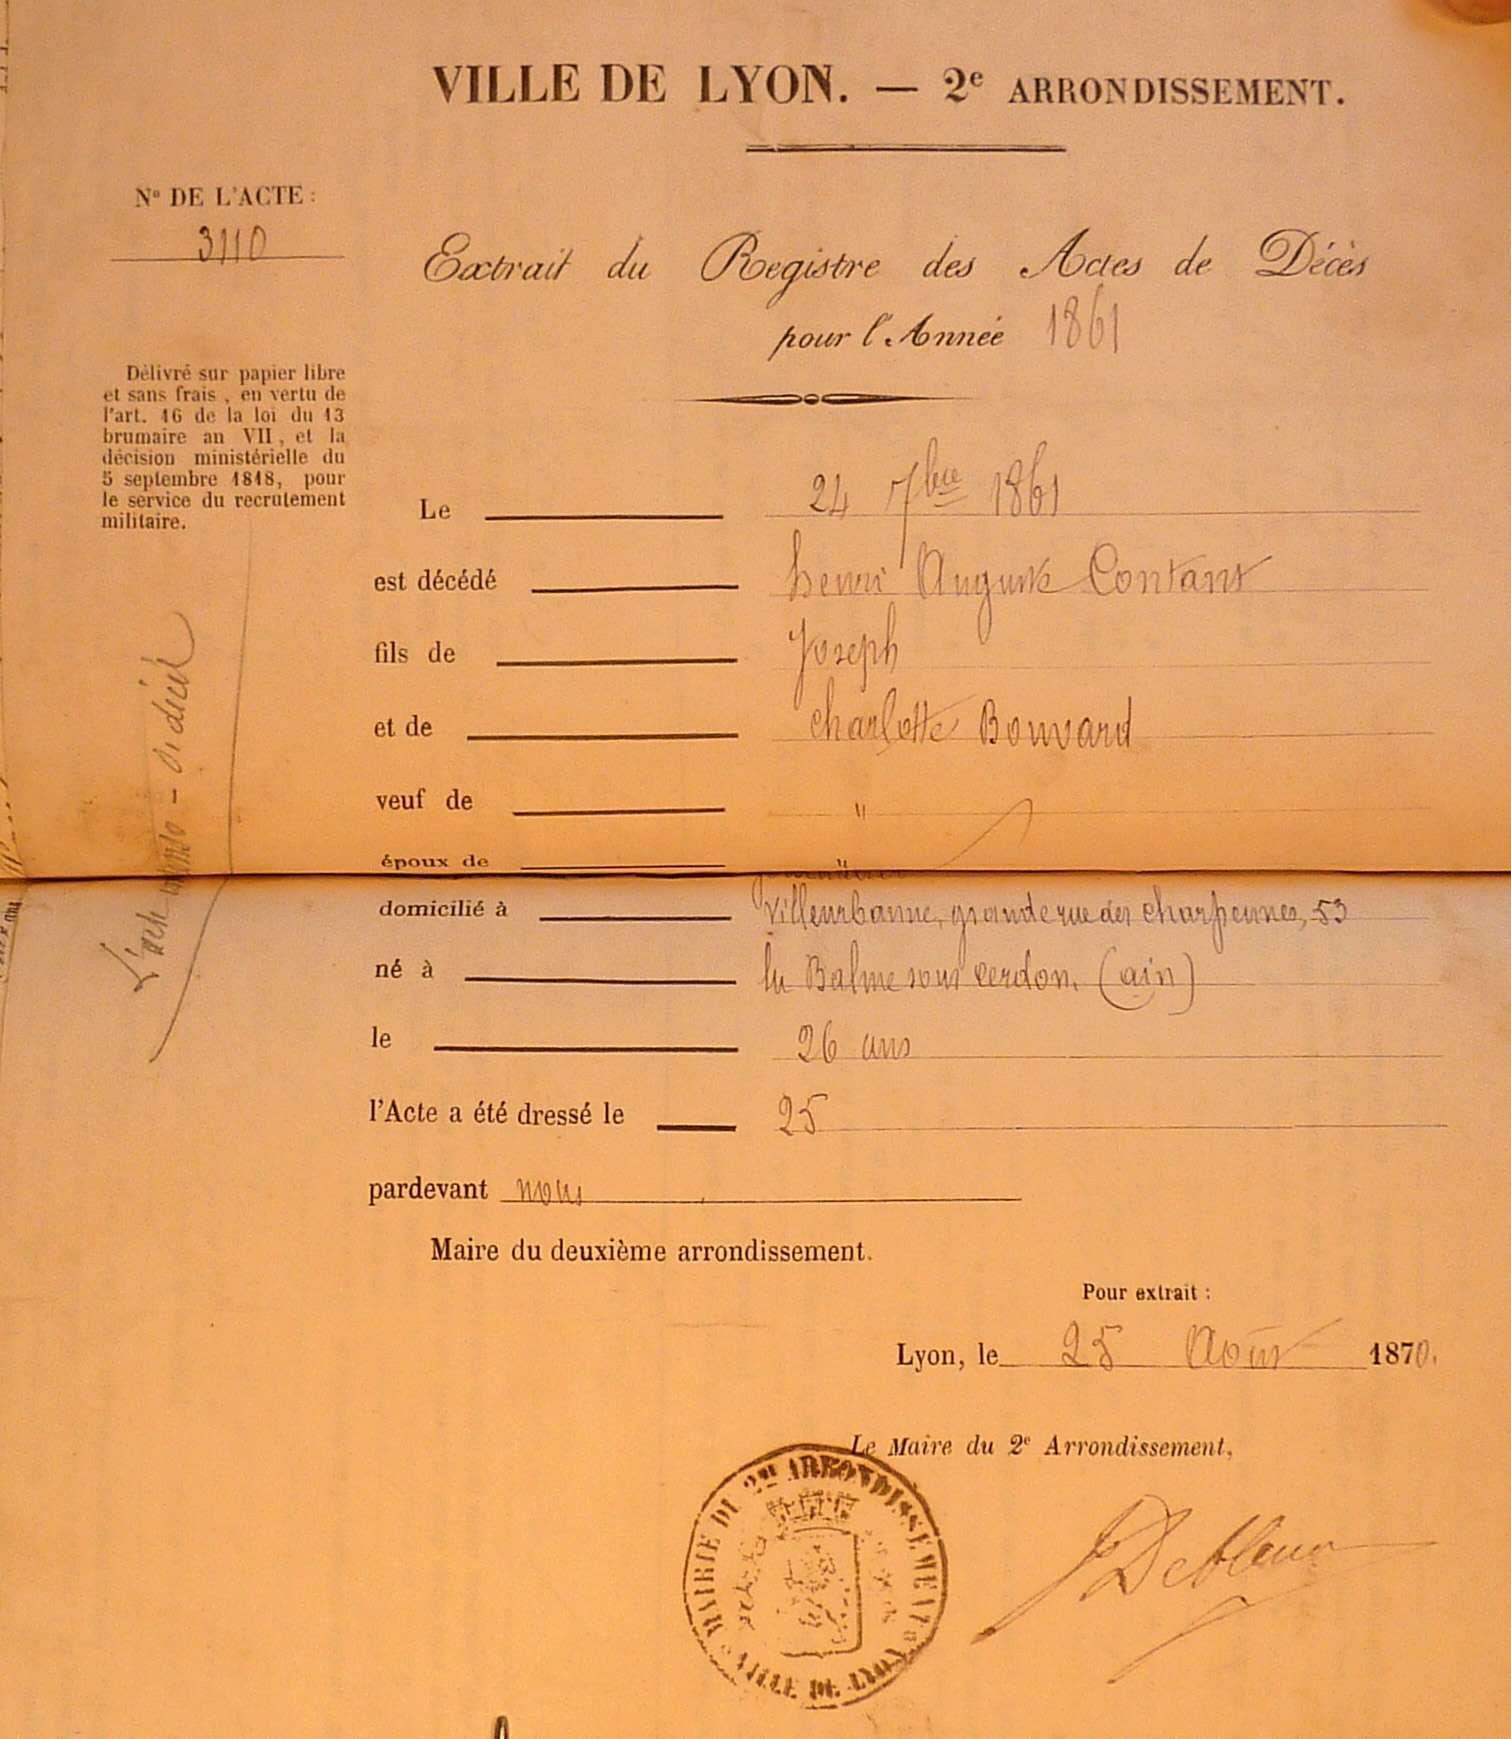 VILLE DE LYON. — 2e ARRONDISSEMENT.
No DE L'ACTE :
3110
Extrait du Registre des Actes de Décès
pour l'Année 1861
Délivré sur papier libre
et sans frais, en vertu de
l'art. 16 de la loi du 13
brumaire an VII, et la
décision ministérielle du
5 septembre 1818, pour
le service du recrutement
militaire.
Le 24 7bre 1861
est décédé henri Auguste Contant
fils de Joseph
et de charlotte Bouvard
veuf de "
époux de "
domicilié à Villeurbanne, grande rue des charpennes, 53
né à la Balme sous cerdon. (ain)
le 26 ans
l'Acte a été dressé le 25
pardevant nous
Maire du deuxième arrondissement.
Pour extrait :
Lyon, le 25 Août 1870.
Le Maire du 2e Arrondissement,
MAIRIE DU 2me ARRONDISSEMENT
VILLE DE LYON
L'acte